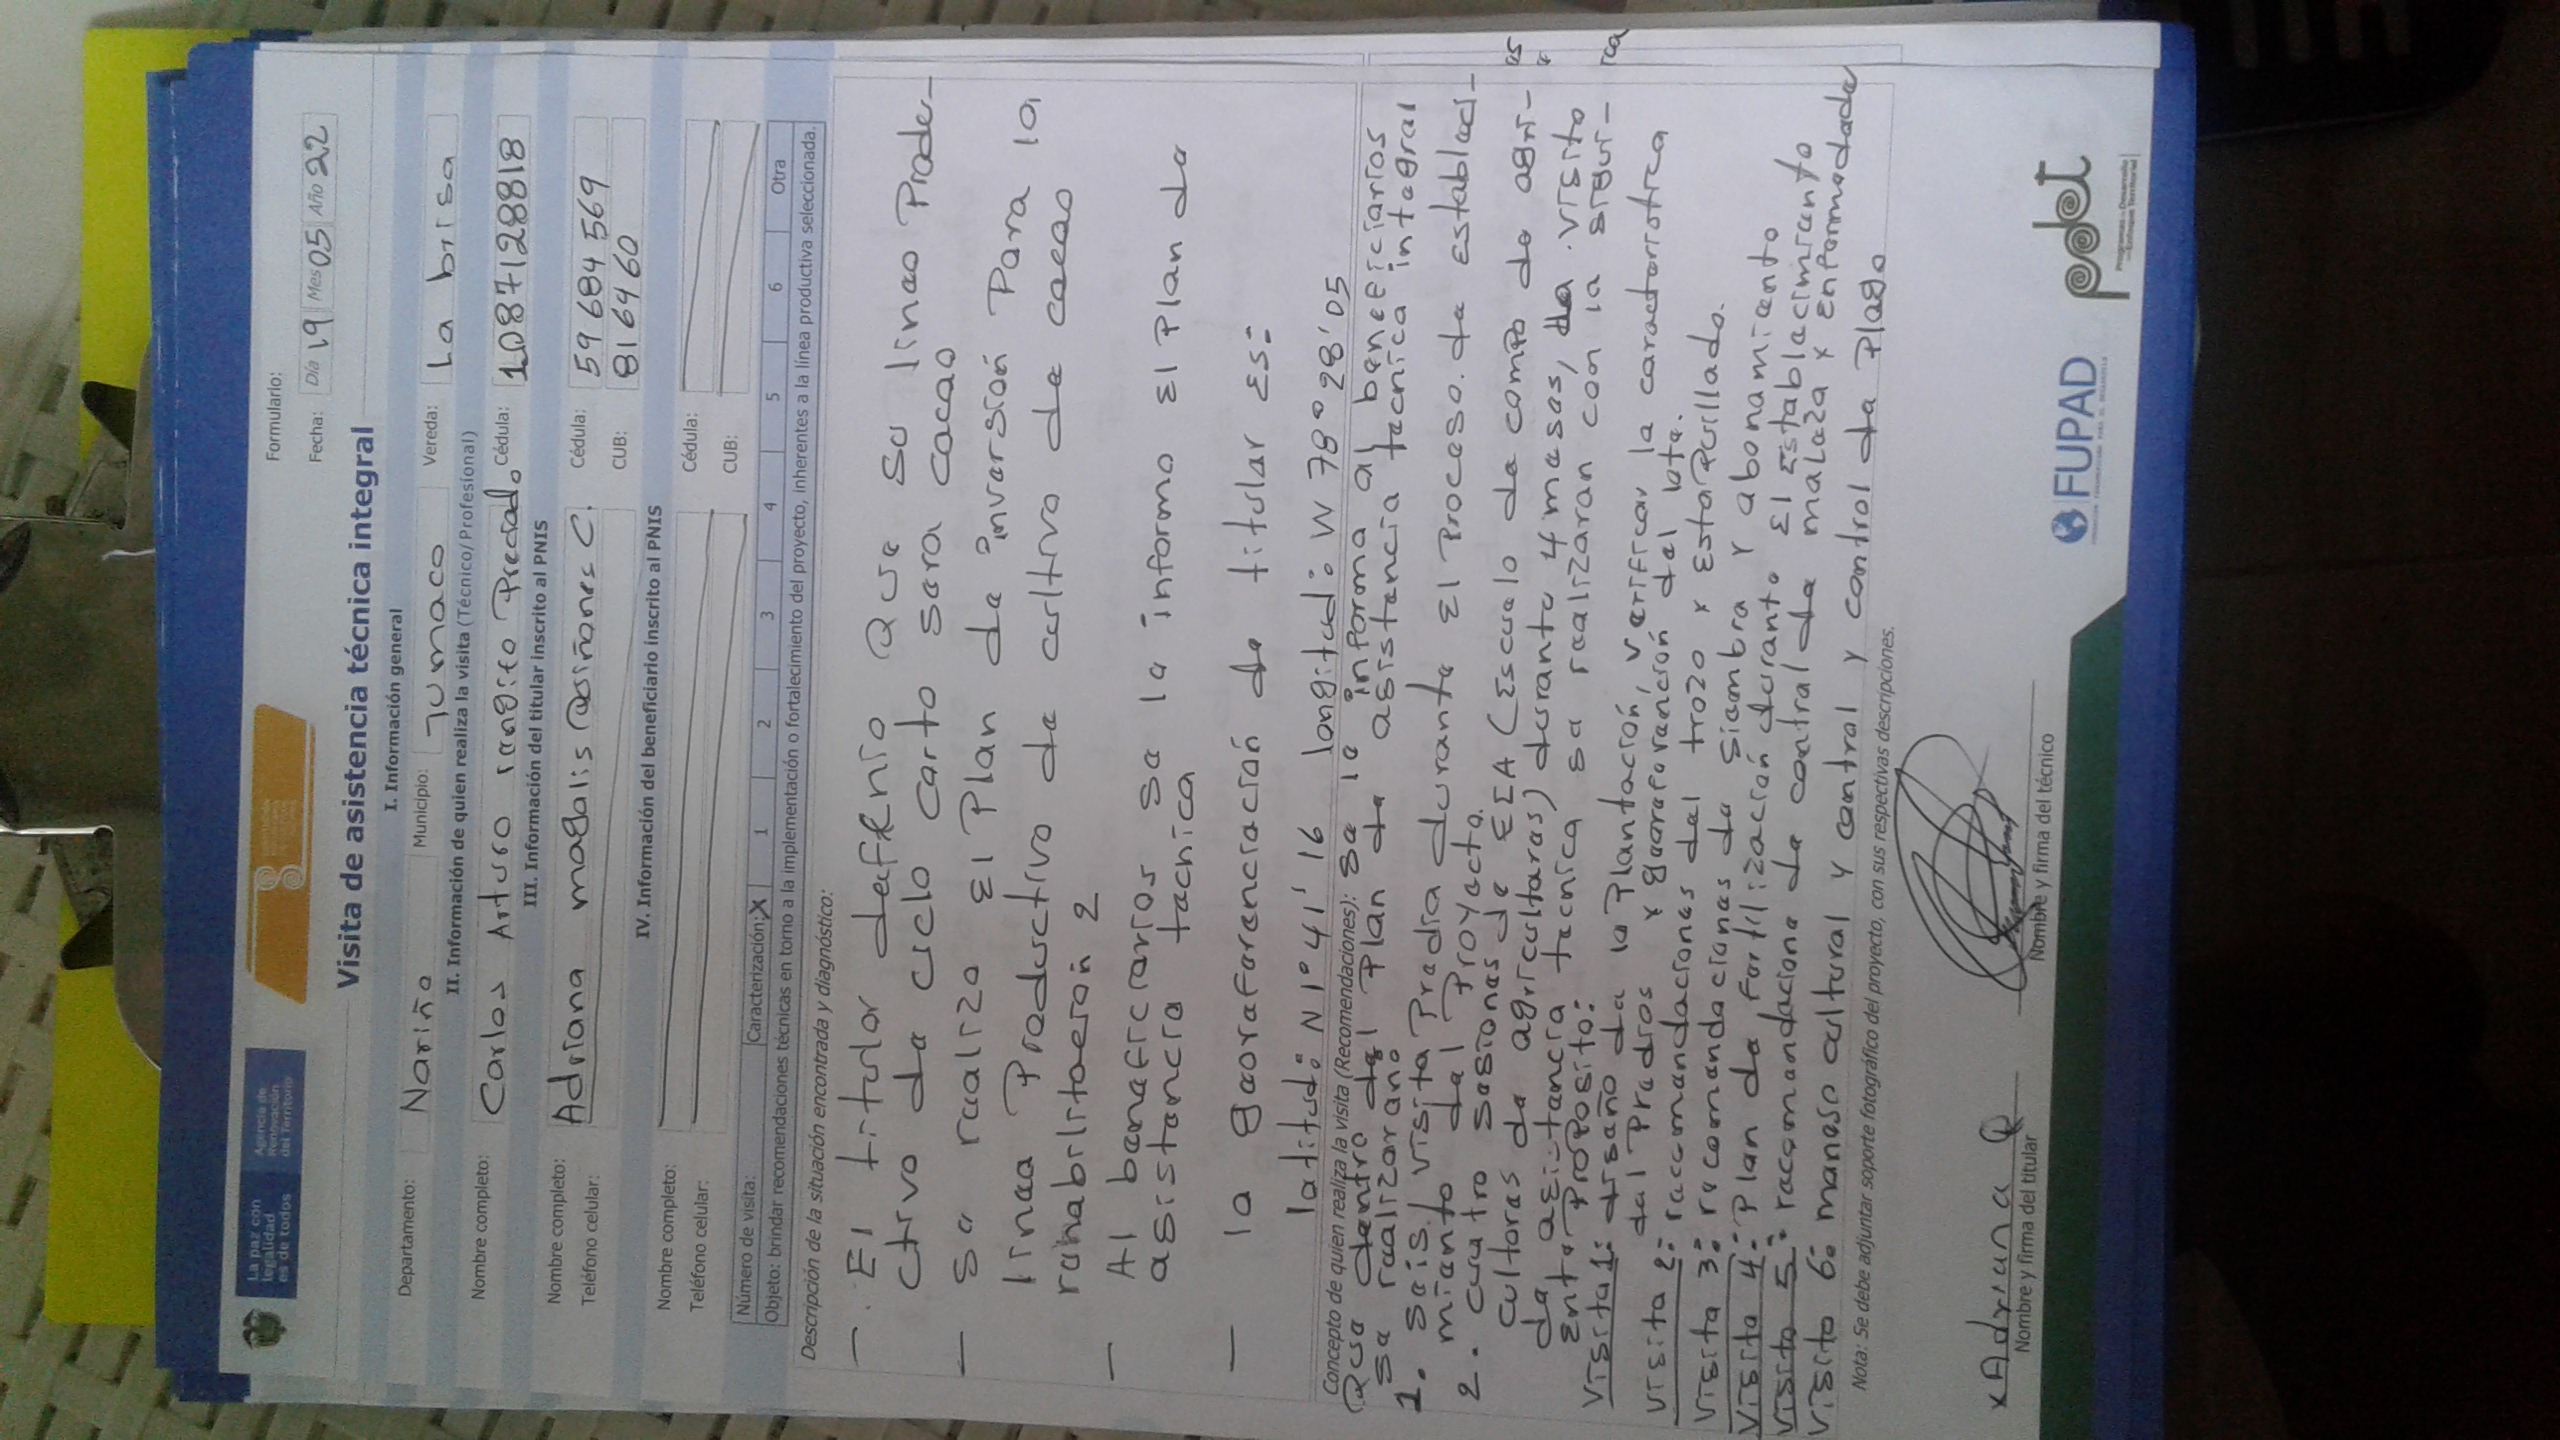 La paz con
legalidad
es de todos
Agencia de
Renovación
del Territorio
Formulario:
Fecha: Día 19 Mes 05 Año 22
Visita de asistencia técnica integral
I. Información general
Departamento: Nariño Municipio: Tumaco Vereda: La brisa
II. Información de quien realiza la visita (Técnico/Profesional)
Nombre completo: Carlos Arturo Preciado Cédula: 1087128818
III. Información del titular inscrito al PNIS
Nombre completo: Adriana magalis Quiñones C. Cédula: 59684569
Teléfono celular: CUB: 8164 60
IV. Información del beneficiario inscrito al PNIS
Nombre completo: Cédula:
Teléfono celular: CUB:
Número de visita: Caracterización: X 1 2 3 4 5 6 Otra
Objeto: brindar recomendaciones técnicas en torno a la implementación o fortalecimiento del proyecto, inherentes a la línea productiva seleccionada.
Descripción de la situación encontrada y diagnóstico:
— El titular defenio que su linea Produ-
ctivo de ciclo corto sera cacao
— se realizo El Plan de invarsion Para la
linea Productivo de cultivo de cacao
rehabilitaeron 2
— Al beneficiarios se la informo El Plan de
asistencia tecnica
— la georeferenciación de titular Es:
latitud: N 1° 41' 16 longitud: W 78° 28' 05
Concepto de quien realiza la visita (Recomendaciones): se le informa al beneficiarios
Que dentro del Plan de asistencia tecnica integral
se realizarano
1. seis visita Predia durante El Proceso de establaci-
miento del Proyecto.
2. cuatro sesiones de EEA (Escuelo de compo de agri-
cultoras de agricultaras) durante 4 meses, la visita
de asistencia tecnica se realizaran con la sigui-
Ente Proposito:
Visita 1: diseño de la Plantación, verificar la caracteristica
del Predios y georeferención del lote.
Visita 2: recomendaciones del trozo y Estaquillado.
Visita 3: recomendaciones de siembra y abonamiento
Visita 4: Plan de Fertilización durante El Establecimiento
Visita 5: recomendacione de control de maleza y Enfermedade
Visito 6: maneso cultural y control y control de Plaga
Nota: Se debe adjuntar soporte fotográfico del proyecto, con sus respectivas descripciones.
x Adriana Q
Nombre y firma del titular
Nombre y firma del técnico
FUPAD
pdet
Programas de Desarrollo
con Enfoque Territorial